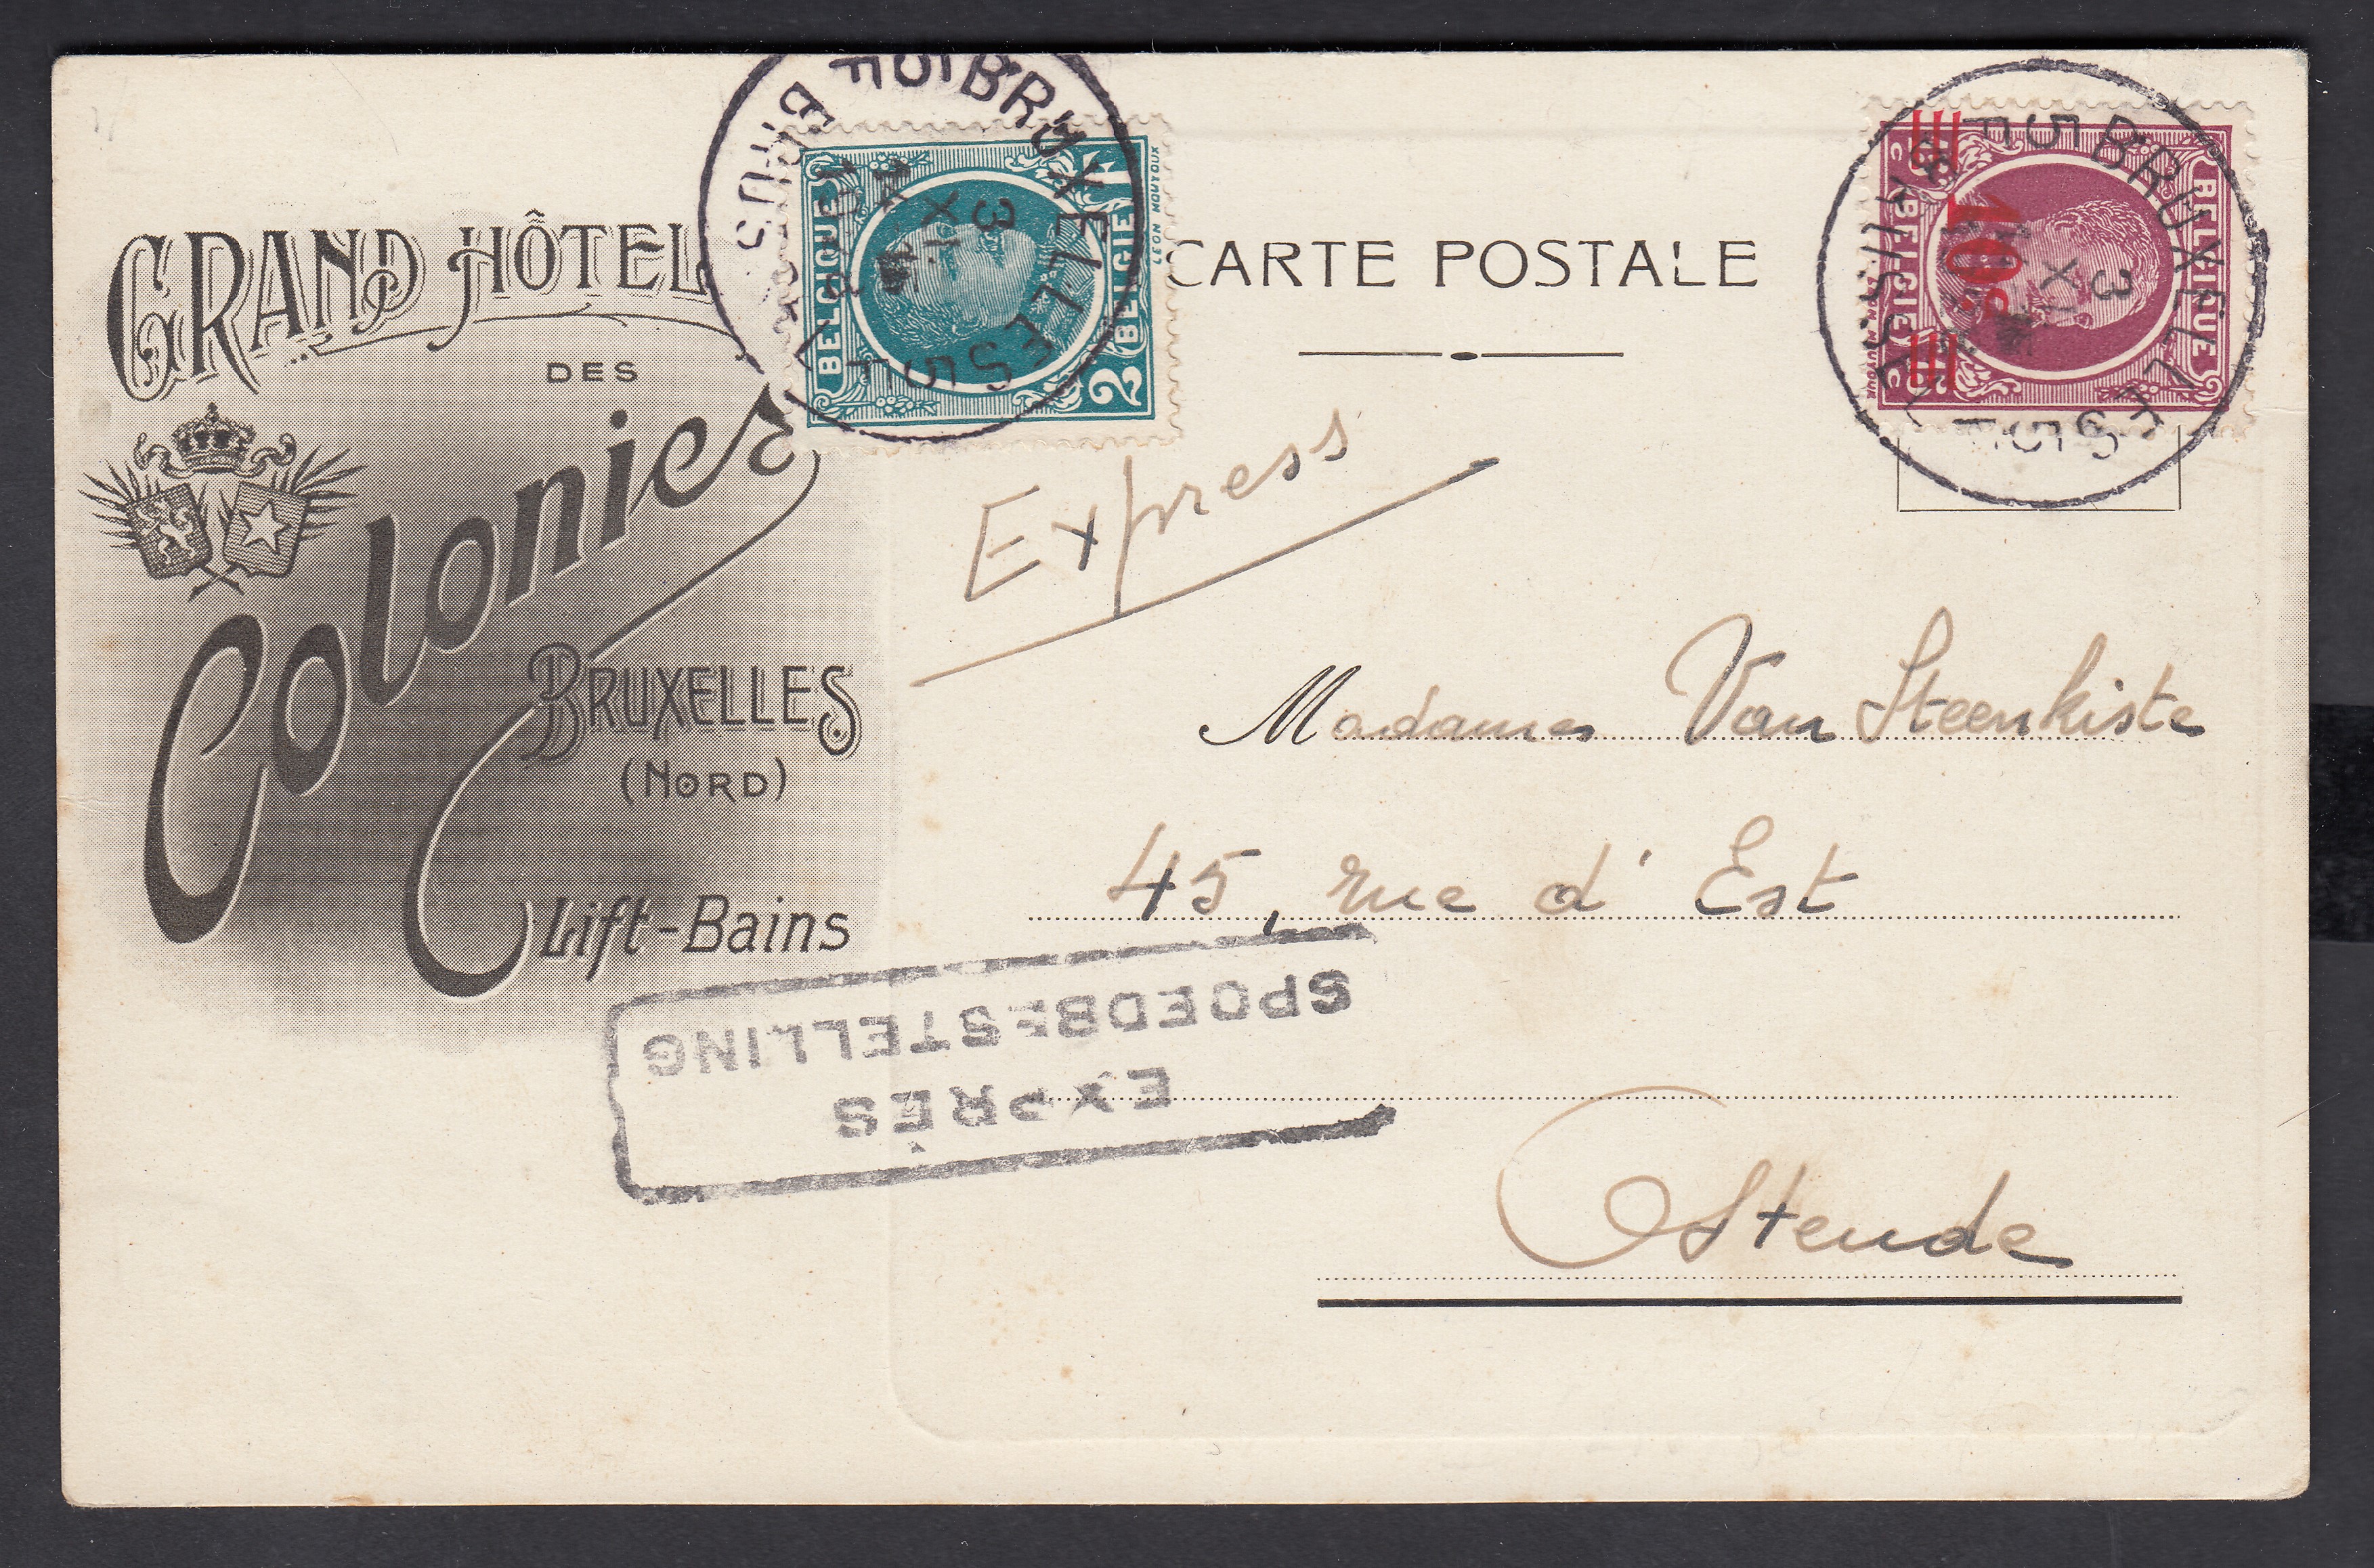 GRAND HÔTEL
DES
Colonies
BRUXELLES
(NORD)
Lift-Bains
BRUXELLES
5F
BRUS
3
XI
BELGIQUE
BELGIE
2 F
LEON MOUYOUX
CARTE POSTALE
BRUXELLES
5F
3
XI
BELGIQUE
BELGIE
10c
Express
Madame Van Steenkiste
45, rue d'Est
Ostende
EXPRÈS
SPOEDBESTELLING